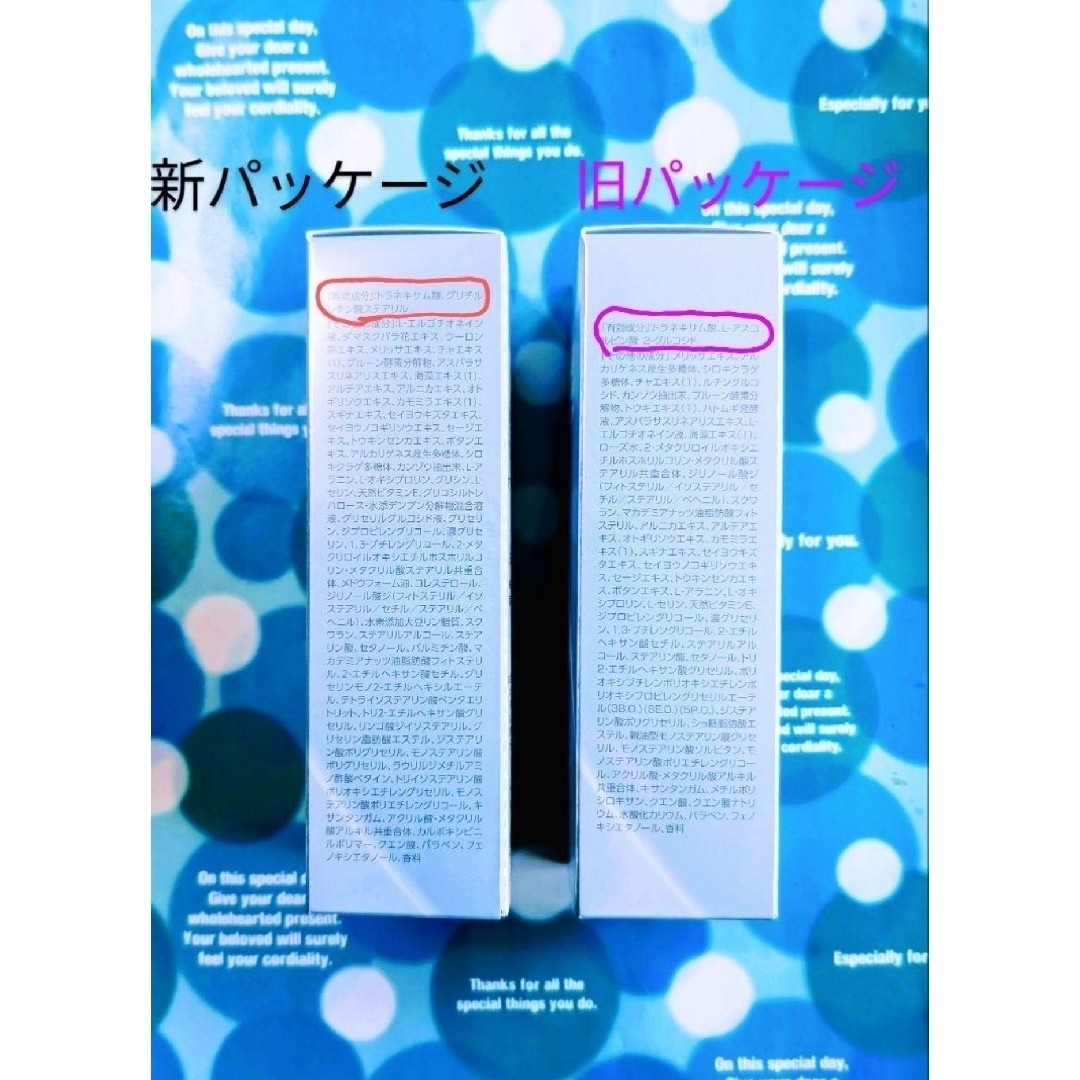 On this special day,
Give your dear a
wholehearted present.
Your beloved will surely
feel your cordiality.
Thanks for all the
special things you do.
Especially for y
新パッケージ
旧パッケージ
On this special day,
dear a
present.
will surely
diality.
[有効成分]:トラネキサム酸、グリチル
レチン酸ステアリル
[その他の成分]:L-エルゴチオネイン
液、ダマスクバラ花エキス、ウーロン
茶エキス、メリッサエキス、チャエキス
(1)、プルーン酵素分解物、アスパラサ
スリネアリスエキス、海藻エキス(1)、
アルテアエキス、アルニカエキス、オト
ギリソウエキス、カモミラエキス(1)、
スギナエキス、セイヨウキズタエキス、
セイヨウノコギリソウエキス、セージエ
キス、トウキンセンカエキス、ボタンエ
キス、アルカリゲネス産生多糖体、シロ
キクラゲ多糖体、カンゾウ抽出末、L-ア
ラニン、L-オキシプロリン、グリシン、L-
セリン、天然ビタミンE、グリコシルトレ
ハロース・水添デンプン分解物混合溶
液、グリセリルグルコシド液、グリセリ
ン、ジプロピレングリコール、濃グリセ
リン、1,3-ブチレングリコール、2-メタ
クリロイルオキシエチルホスホリルコ
リン・メタクリル酸ステアリル共重合
体、メドウフォーム油、コレステロール、
ジリノール酸ジ(フィトステリル/イソ
ステアリル/セチル/ステアリル/ベ
ヘニル)、水素添加大豆リン脂質、スク
ワラン、ステアリルアルコール、ステア
リン酸、セタノール、パルミチン酸、マ
カデミアナッツ油脂肪酸フィトステリ
ル、2-エチルヘキサン酸セチル、グリ
セリンモノ2-エチルヘキシルエーテ
ル、テトライソステアリン酸ペンタエリ
トリット、トリ2-エチルヘキサン酸グリ
セリル、リンゴ酸ジイソステアリル、グ
リセリン脂肪酸エステル、ジステアリ
ン酸ポリグリセリル、モノステアリン酸
ポリグリセリル、ラウリルジメチルアミ
ノ酢酸ベタイン、トリイソステアリン酸
ポリオキシエチレングリセリル、モノス
テアリン酸ポリエチレングリコール、キ
サンタンガム、アクリル酸・メタクリル
酸アルキル共重合体、カルボキシビニ
ルポリマー、クエン酸、パラベン、フェ
ノキシエタノール、香料
[有効成分]:トラネキサム酸、L-アスコ
ルビン酸 2-グルコシド
[その他の成分]:メリッサエキス、アル
カリゲネス産生多糖体、シロキクラゲ
多糖体、チャエキス(1)、ルチングルコ
シド、カンゾウ抽出末、プルーン酵素分
解物、トウキエキス(1)、ハトムギ発酵
液、アスパラサスリネアリスエキス、L-
エルゴチオネイン液、海藻エキス(1)、
ローズ水、2-メタクリロイルオキシエ
チルホスホリルコリン・メタクリル酸ス
テアリル共重合体、ジリノール酸ジ
(フィトステリル/イソステアリル/セ
チル/ステアリル/ベヘニル)、スクワ
ラン、マカデミアナッツ油脂肪酸フィト
ステリル、アルニカエキス、アルテアエ
キス、オトギリソウエキス、カモミラエ
キス(1)、スギナエキス、セイヨウキズ
タエキス、セイヨウノコギリソウエキ
ス、セージエキス、トウキンセンカエキ
ス、ボタンエキス、L-アラニン、L-オキ
シプロリン、L-セリン、天然ビタミンE、
ジプロピレングリコール、濃グリセリ
ン、1,3-ブチレングリコール、2-エチル
ヘキサン酸セチル、ステアリルアル
コール、ステアリン酸、セタノール、トリ
2-エチルヘキサン酸グリセリル、ポリ
オキシブチレンポリオキシエチレンポ
リオキシプロピレングリセリルエーテ
ル(3B.O.)(8E.O.)(5P.O.)、ジステア
リン酸ポリグリセリル、ショ糖脂肪酸エ
ステル、親油型モノステアリン酸グリセ
リル、モノステアリン酸ソルビタン、モ
ノステアリン酸ポリエチレングリコー
ル、アクリル酸・メタクリル酸アルキル
共重合体、キサンタンガム、メチルポリ
シロキサン、クエン酸、クエン酸ナトリ
ウム、水酸化カリウム、パラベン、フェノ
キシエタノール、香料
Thanks for a
special things y
ly for you.
ecial day,
r dear a
present.
will surely
cordiality.
On this special
Give your dear
wholehearted present.
Your beloved will surely
feel your cordiality.
Thanks for all the
special things you do.
Especially for
On this special day,